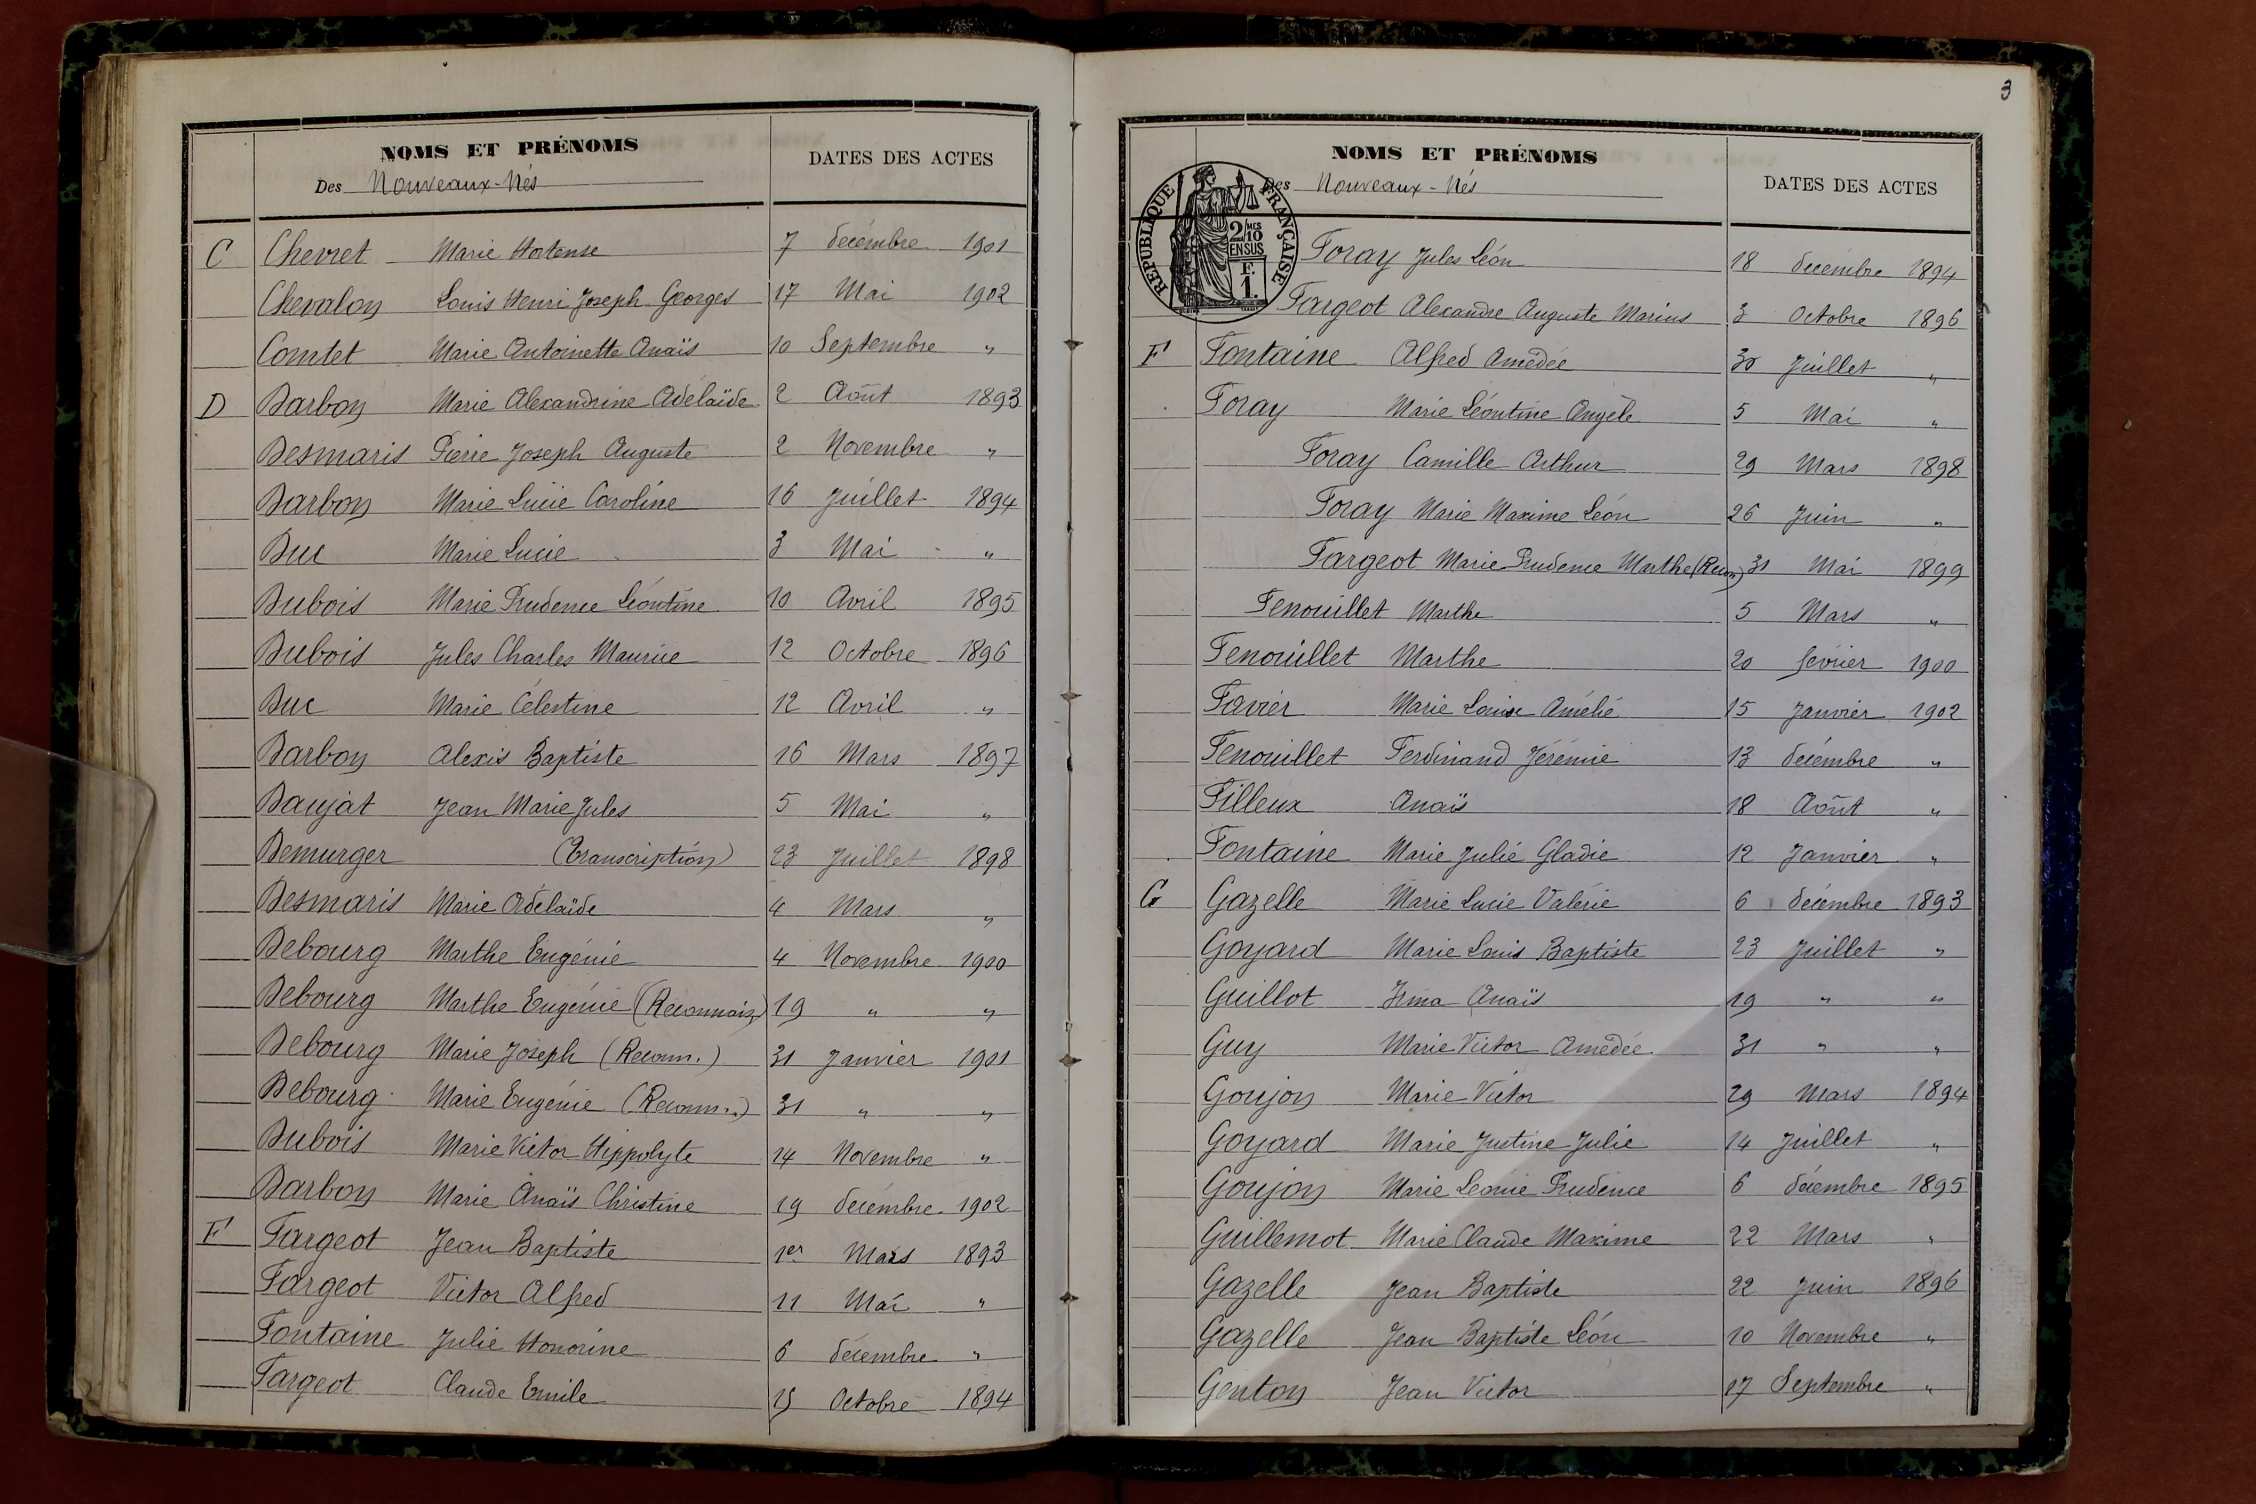 NOMS ET PRÉNOMS
Des Nouveaux-Nés
DATES DES ACTES
C Chevret Marie Hortense 7 décembre 1901
Chevalon Louis Henri Joseph Georges 17 Mai 1902
Comtet Marie Antoinette Anaïs 10 Septembre "
D Darbon Marie Alexandrine Adélaïde 2 Août 1893
Desmaris Pierre Joseph Auguste 2 Novembre "
Darbon Marie Lucie Caroline 16 Juillet 1894
Duc Marie Lucie 3 Mai "
Dubois Marie Prudence Léontine 10 Avril 1895
Dubois Jules Charles Maurice 12 Octobre 1896
Duc Marie Célestine 12 Avril "
Darbon Alexis Baptiste 16 Mars 1897
Daujat Jean Marie Jules 5 Mai "
Demurger (Transcription) 23 Juillet 1898
Desmaris Marie Adélaïde 4 Mars "
Debourg Marthe Eugénie 4 Novembre 1900
Debourg Marthe Eugénie (Reconnais) 19 " "
Debourg Marie Joseph (Reconn.) 31 Janvier 1901
Debourg Marie Eugénie (Reconn..) 31 " "
Dubois Marie Victor Hippolyte 14 Novembre "
Darbon Marie Anaïs Christine 19 décembre 1902
F Fargeot Jean Baptiste 1er Mars 1893
Fargeot Victor Alfred 11 Mai "
Fontaine Julie Honorine 6 décembre "
Fargeot Claude Emile 15 Octobre 1894
3
NOMS ET PRÉNOMS
Des Nouveaux-Nés
DATES DES ACTES
RÉPUBLIQUE FRANÇAISE
2/10 MES
EN SUS
F.
1.
Foray Jules Léon 18 décembre 1894
Fargeot Alexandre Auguste Marius 3 Octobre 1896
F Fontaine Alfred Amédée 30 Juillet "
Foray Marie Léontine Angèle 5 Mai "
Foray Camille Arthur 29 Mars 1898
Foray Marie Maxime Léon 26 Juin "
Fargeot Marie Prudence Marthe (Recon) 31 Mai 1899
Fenouillet Marthe 5 Mars "
Fenouillet Marthe 20 février 1900
Favier Marie Louise Amélie 15 Janvier 1902
Fenouillet Ferdinand Jérémie 13 décembre "
Filleux Anaïs 18 Août "
Fontaine Marie Julie Gladie 12 Janvier "
G Gazelle Marie Lucie Valérie 6 décembre 1893
Goyard Marie Louis Baptiste 23 Juillet "
Guillot Irma Anaïs 19 " "
Guy Marie Victor Amédée 31 " "
Goujon Marie Victor 29 Mars 1894
Goyard Marie Justine Julie 14 Juillet "
Goujon Marie Léonie Prudence 6 décembre 1895
Guillemot Marie Claude Maxime 22 Mars "
Gazelle Jean Baptiste 22 Juin 1896
Gazelle Jean Baptiste Léon 10 Novembre "
Genton Jean Victor 17 Septembre "